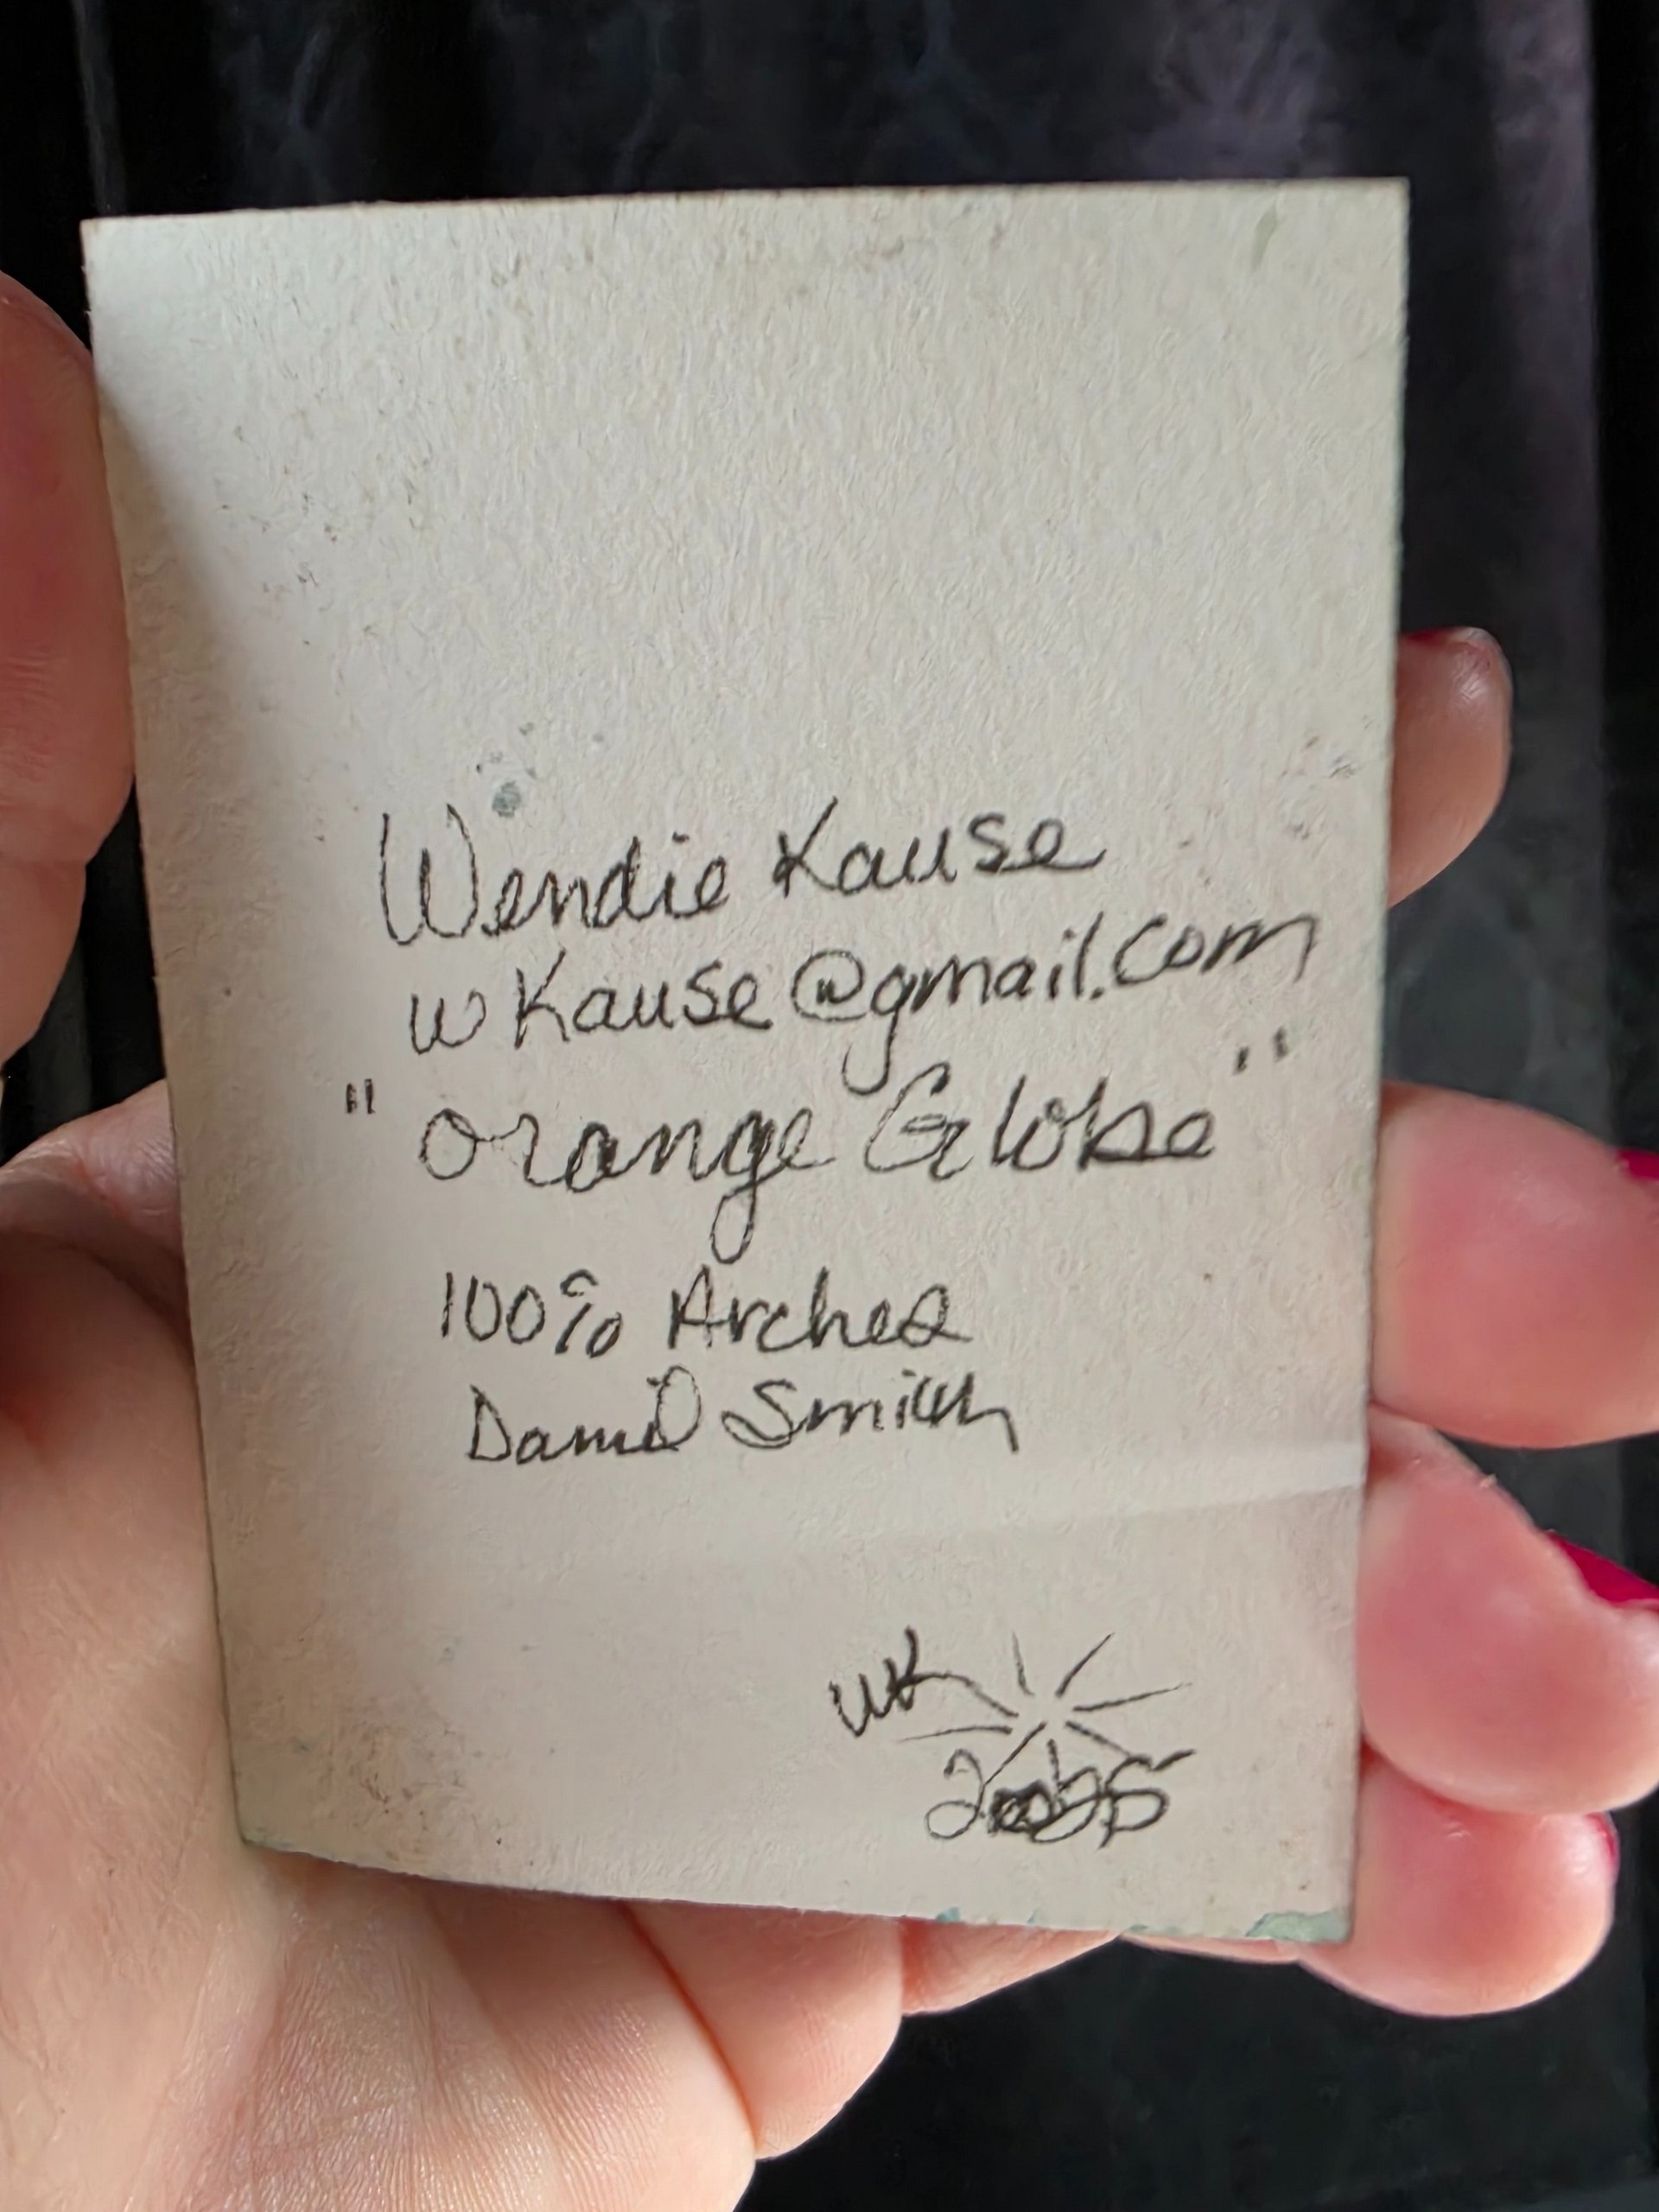 Wendie Kause
wKause@gmail.com
"Orange Globe"
100% Arches
Daniel Smith
WK